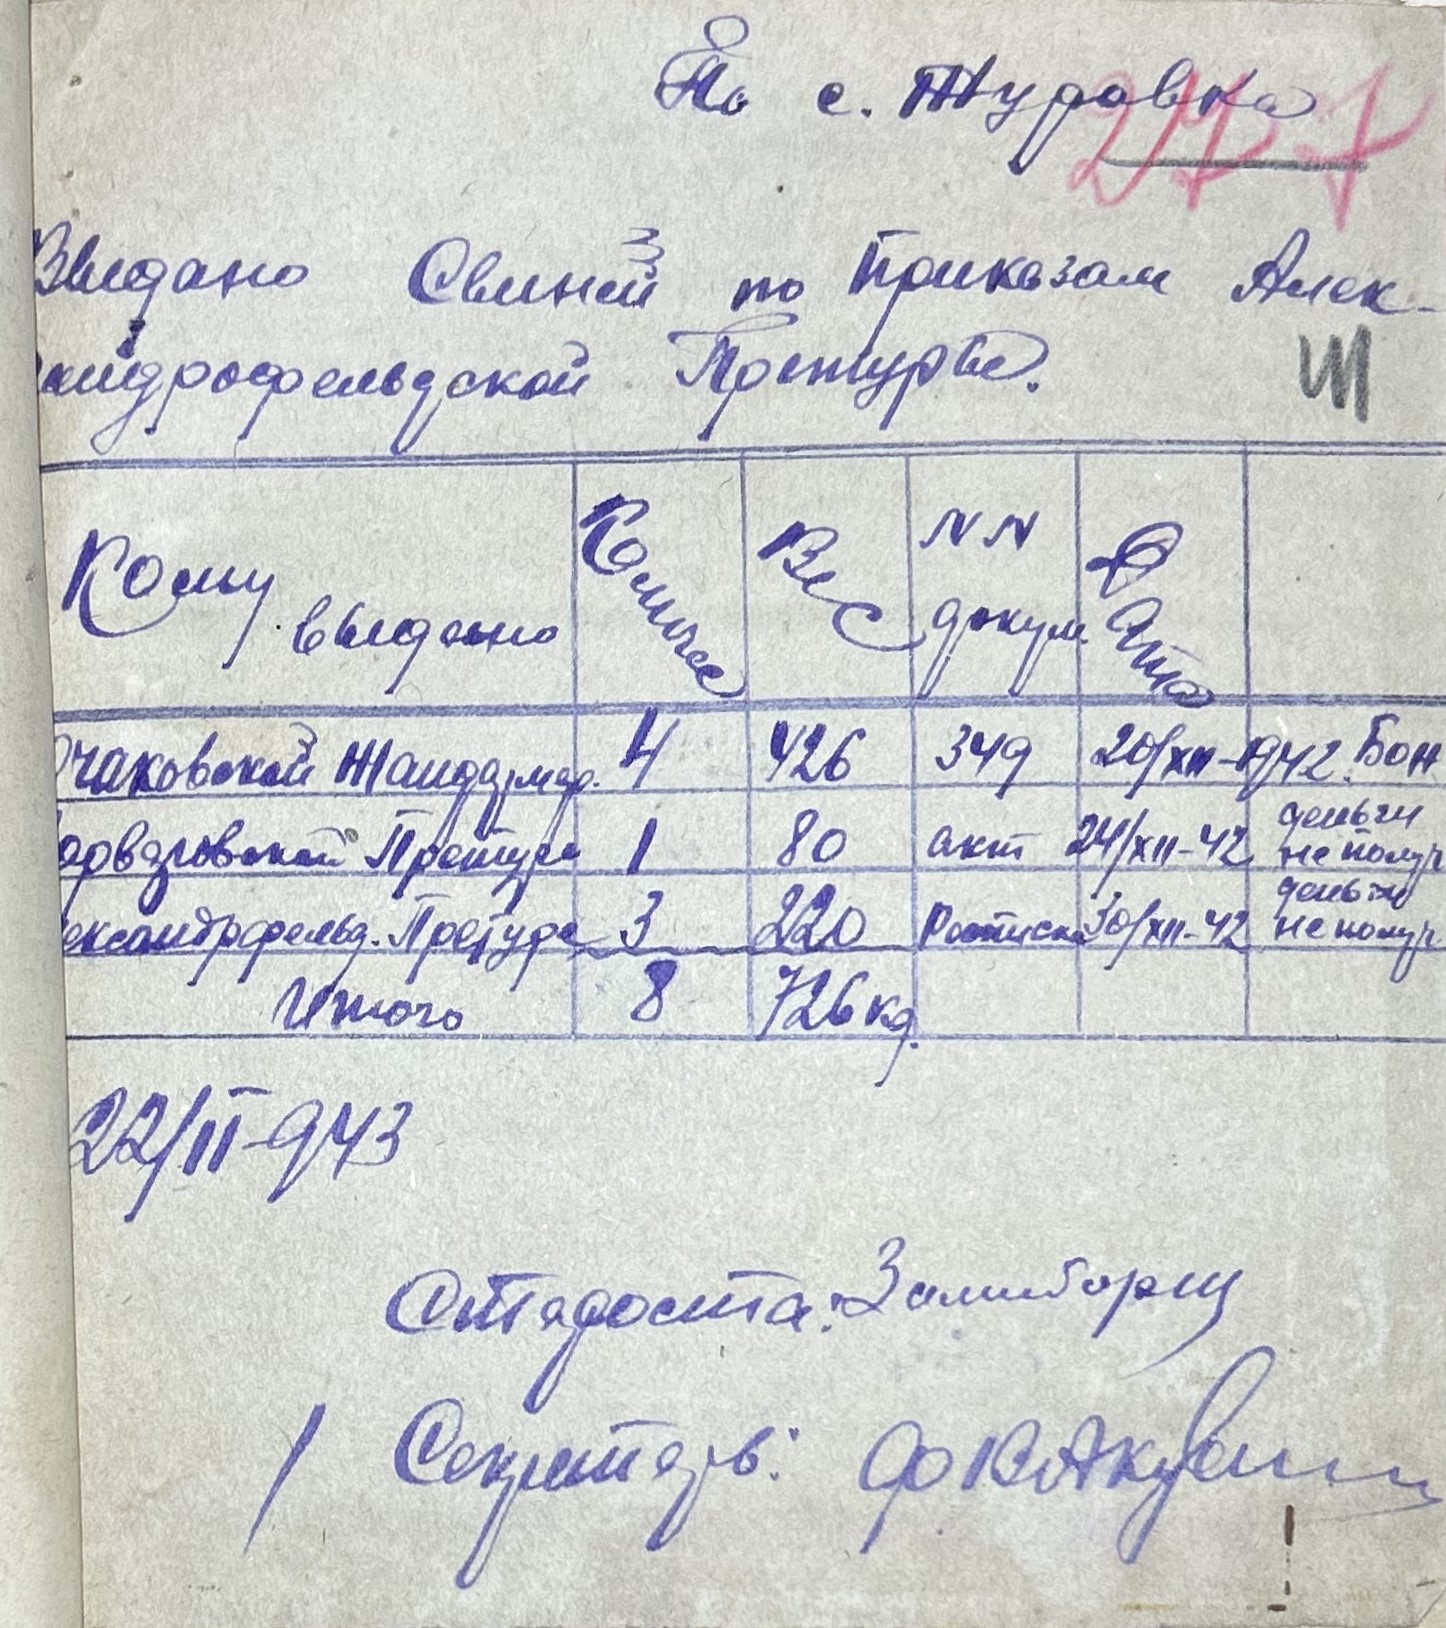 По с. Журавка
277
Выдано Свиней по Приказам Алек-
сандрофельдской Претуры.
III
Кому выдано Колическ Вес NN докум Дата
Очаковской Жандарм. 4 426 349 20/XII-1942 Бон
Варваровской Претуре 1 80 акт 24/XII-42 деньги не получ
лександрфельд. Претуре 3 220 Росписка 30/XII-42 деньги не получ
Итого 8 726 кг.
22/II-943
Староста:
Секретарь: